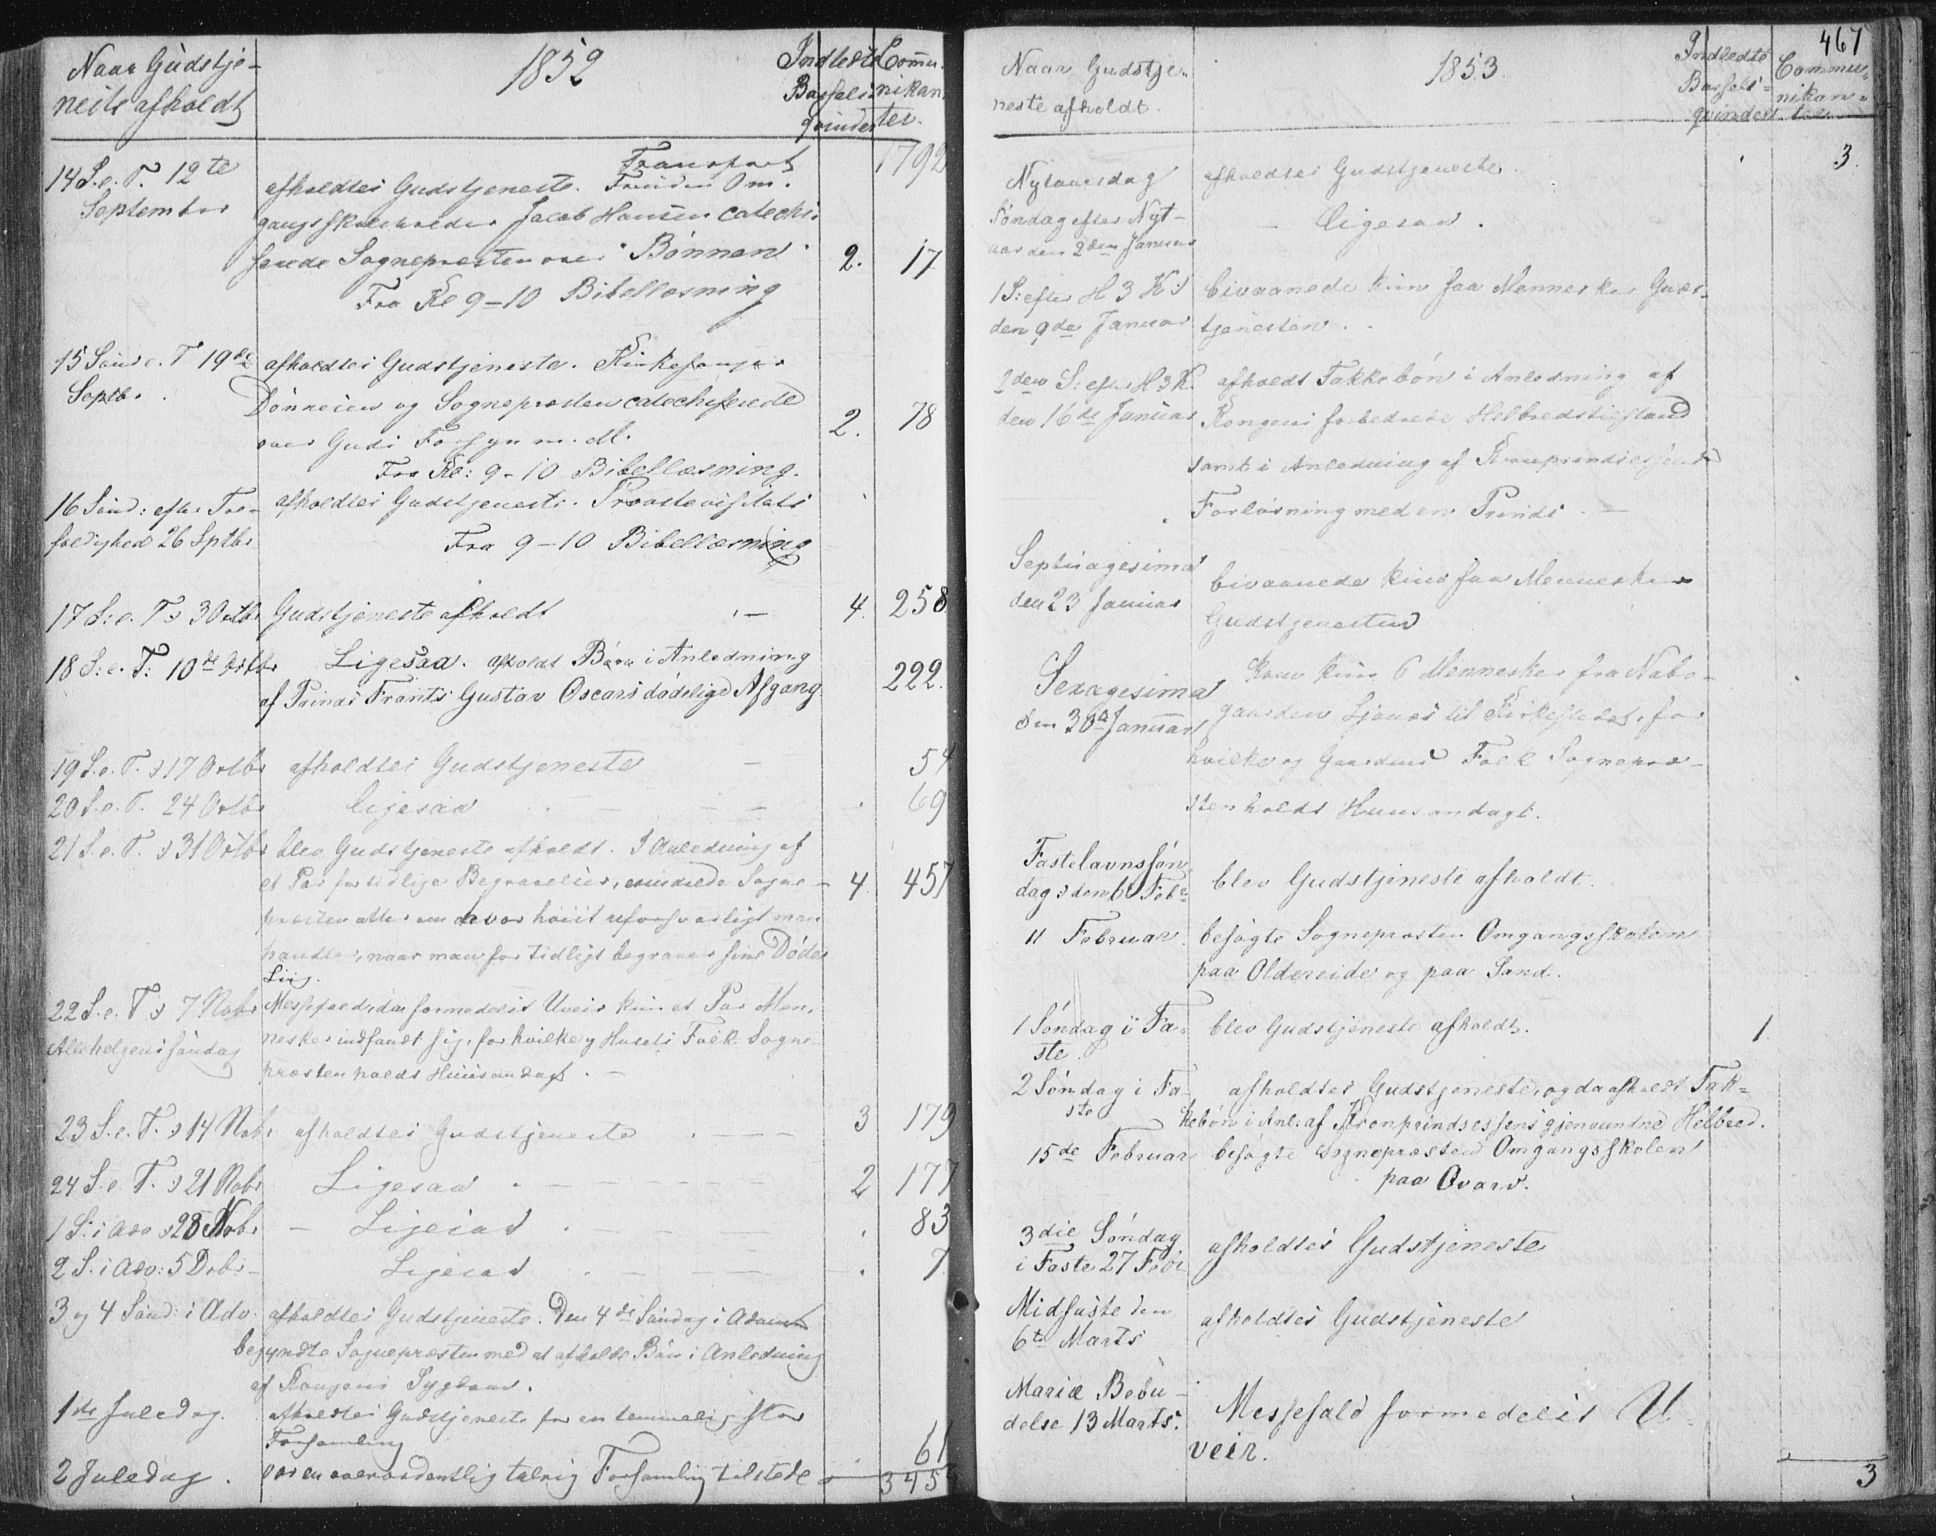 Naar Gudstje-
neste afholdt
1852
Indledte
Barsels
qvinder
Commu-
nikan
ter.
Transport 1792
14 S. e. T. 12te
September
afholdtes Gudstjeneste. Om-
gangsskoleholder Jacob Hansen catechi-
serede Sognepresten over Bønnen 2. 17
Fra Kl 9-10 Bibellæsning
15 Sønd e. T 19de
Septbr
afholdtes Gudstjeneste. Kirkesanger
Dønneien og Sognepresten catechiserede
over Guds Forsyn m. M. 2. 78
Fra Kl: 9-10 Bibellæsning.
16 Sønd: efter Tre-
foldighed 26 Sptbr
afholdtes Gudstjeneste. Proustevisitats
Fra 9-10 Bibellæsning
17 S: e. T. 3 Octbr Gudstjeneste afholdt - 4. 258
18 S: e. T: 10de Octbr Ligesaa. afholdt Bøn i Anledning
af Prinds Frants Gustav Oscars dødelige Afgang 222.
19 S. e. T. 17 Octbr afholdtes Gudstjeneste - 54
20 S. e. T. 24 Octbr Ligesaa - - - 69
21 S. e. T. 31 Octbr blev Gudstjeneste afholdt. I Anledning af
et Par for tidlige Begravelser, Sogne- 4. 457
præsten atter om hvor høiit uforsvarligt man
handler, naar man for tidligt begraver sine Dødes
Liig.
22 S. e. T. 7 Nobr
Allehelgens søndag
Messefald, da formedelst Uveir kun et Par Men-
nesker indfandt sig, for hvilke og Husets Folk Sogne-
præsten holdt Huusandagt. -
23 S. e. T. 14 Nobr afholdtes Gudstjeneste - - - 3 179
24 S. e. T. 21 Nobr Ligesaa - - - - - 2 177
1 S: i Adv 28 Nobr - Ligesaa - - - 83
2 S. i Adv: 5 Dcbr - Ligesaa - - - 7
3 og 4 Sønd: i Adv. afholdtes Gudstjeneste. Den 4de Søndag i Advent
begyndte Sognepresten med at afholde Bøn i Anledning
af Kongens Sygdom.
1ste Juledag. afholdtes Gudstjeneste for en temmelig stor
Forsamling 61
2 Juledag. var en overordentlig talrig Forsamling tilstede
345
467
Naar Gudstje-
neste afholdt.
1853.
Indledte
Barsels-
qvinder
Commu-
nikan-
ter
Nytaarsdag afholdtes Gudstjeneste. 3.
Søndag efter Nyt-
aar den 2den Januar
- Ligesaa.
1 S: efter H 3 K:
den 9de Januar
bivaanede kun faa Mennesker Guds-
tjenesten.
2den S: efter H 3 K.
den 16de Januar
afholdt Takkebøn i Anledning af
Kongens forbedrede Helbredstilstand
samt i Anledning af Kronprindsessens
Forløsning med en Prinds. -
Septuagesima
den 23 Januar
bivaanede kun faa Mennesker
Gudstjenesten
Sexagesima
den 30 Januar
kom kun 6 Mennesker fra Nabo-
gaarden til Kirkestedet, for
hvilke og Gaardens Folk Sognepræ-
sten holdt Huusandagt.
Fastelavnssøn-
dag den 6 Feb
blev Gudstjeneste afholdt.
11 Februar. besøgte Sognepresten Omgangsskolen
paa Oldereide og paa Sand.
1 Søndag i Fa-
ste.
blev Gudstjeneste afholdt. 1.
2 Søndag i Fa-
ste
afholdtes Gudstjeneste, og da afholdt Tak-
kebøn i Anl: af Kronprindsessens gjenvundne Helbred.
15de Februar besøgte Sognepresten Omgangsskolen
paa Qvarv.
3die Søndag
i Faste 27 Febr
afholdtes Gudstjeneste
Midfaste den
6te Marts
afholdtes Gudstjeneste
Mariæ Bebu-
delse 13 Marts.
Messefald formedelst U-
veir.
3